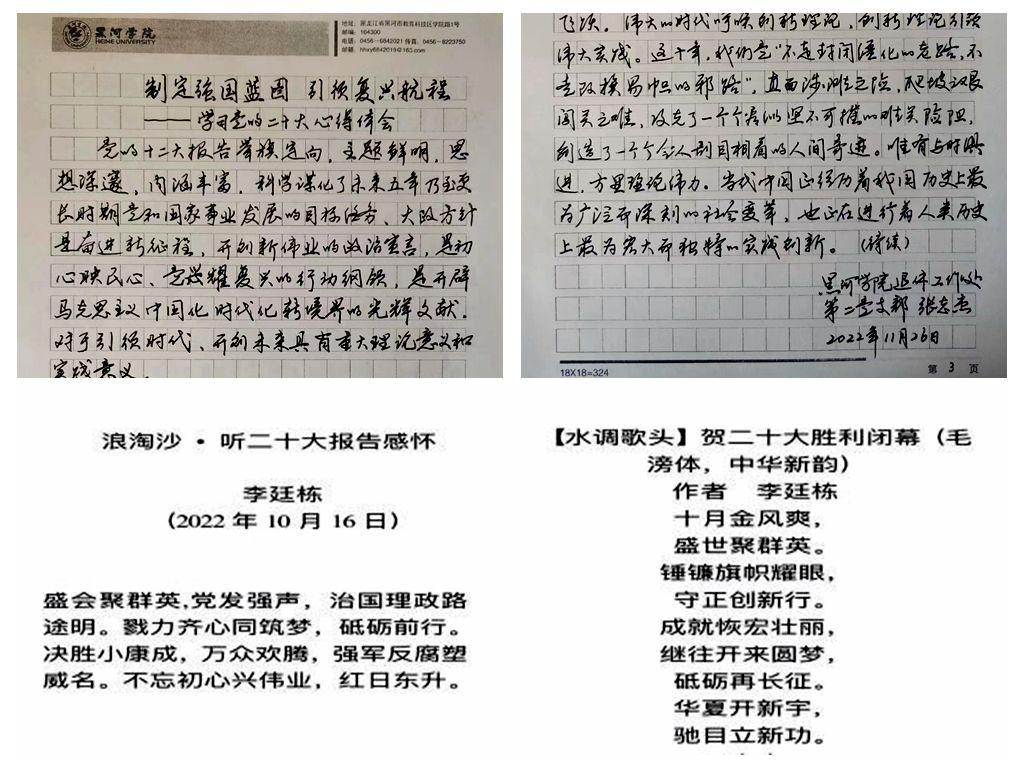 黑河学院
HEIHE UNIVERSITY
地址：黑龙江省黑河市教育科技区学院路1号
邮编：164300
电话：0456-6842021 传真：0456-8223750
邮箱：hhxy6842019@163.com
制定强国蓝图 引领复兴航程
——学习党的二十大心得体会
党的十二大报告举旗定向，主题鲜明，思
想深邃，内涵丰富，科学谋化了未来五年乃至更
长时期党和国家事业发展的目标任务、大政方针
是奋进新征程，开创新伟业的政治宣言，是初
心映民心、党兴耀复兴的行动纲领，是开辟
马克思主义中国化时代化新境界的光辉文献。
对于引领时代、开创未来具有重大理论意义和
实践意义。
飞跃。伟大的时代呼唤创新理论，创新理论引领
伟大实践。这十年，我们党"不走封闭僵化的老路，不
走改旗易帜的邪路"，直面涉滩之险，爬坡之艰
闯关之难，攻克了一个个看似坚不可摧的难关险阻，
创造了一个个令人刮目相看的人间奇迹。唯有与时俱
进，方显强论伟力。当代中国正经历着我国历史上最
为广泛而深刻的社会变革，也正在进行着人类历史
上最为宏大而独特的实践创新。（待续）
黑河学院退休工作处
第二党支部 张志杰
2022年11月26日
18X18=324
第 3 页
浪淘沙·听二十大报告感怀
李廷栋
（2022 年 10 月 16 日）
盛会聚群英,党发强声，治国理政路
途明。戮力齐心同筑梦，砥砺前行。
决胜小康成，万众欢腾，强军反腐塑
威名。不忘初心兴伟业，红日东升。
【水调歌头】贺二十大胜利闭幕（毛
滂体，中华新韵）
作者 李廷栋
十月金风爽，
盛世聚群英。
锤镰旗帜耀眼，
守正创新行。
成就恢宏壮丽，
继往开来圆梦，
砥砺再长征。
华夏开新宇，
驰目立新功。